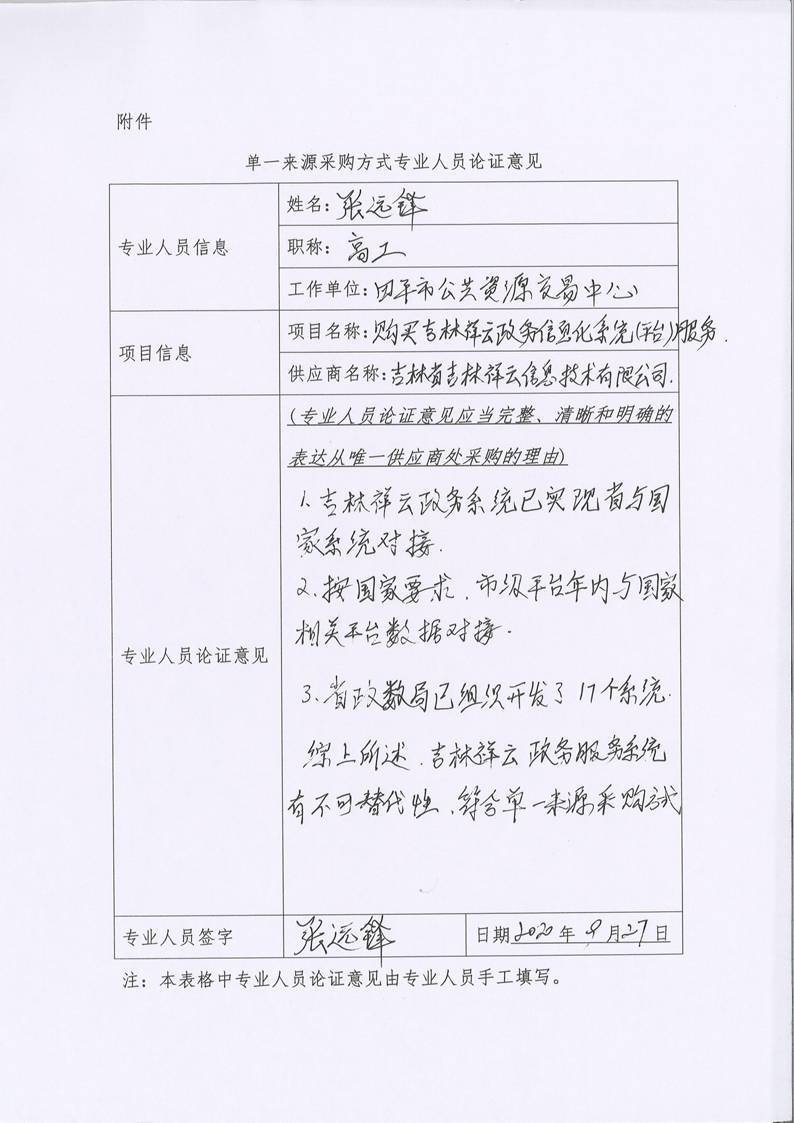 附件
单一来源采购方式专业人员论证意见
专业人员信息
姓名：张远锋
职称：高工
工作单位：四平市公共资源交易中心
项目信息
项目名称：购买吉林祥云政务信息化系统(平台)服务.
供应商名称：吉林省吉林祥云信息技术有限公司.
专业人员论证意见
(专业人员论证意见应当完整、清晰和明确的
表达从唯一供应商处采购的理由)
1、吉林祥云政务系统已实现省与国
家系统对接.
2、按国家要求、市级平台年内与国家
相关平台数据对接.
3、省政数局已组织开发了17个系统.
综上所述、吉林祥云政务服务系统
有不可替代性、符合单一来源采购方式
专业人员签字
张远锋
日期2020年9月27日
注：本表格中专业人员论证意见由专业人员手工填写。